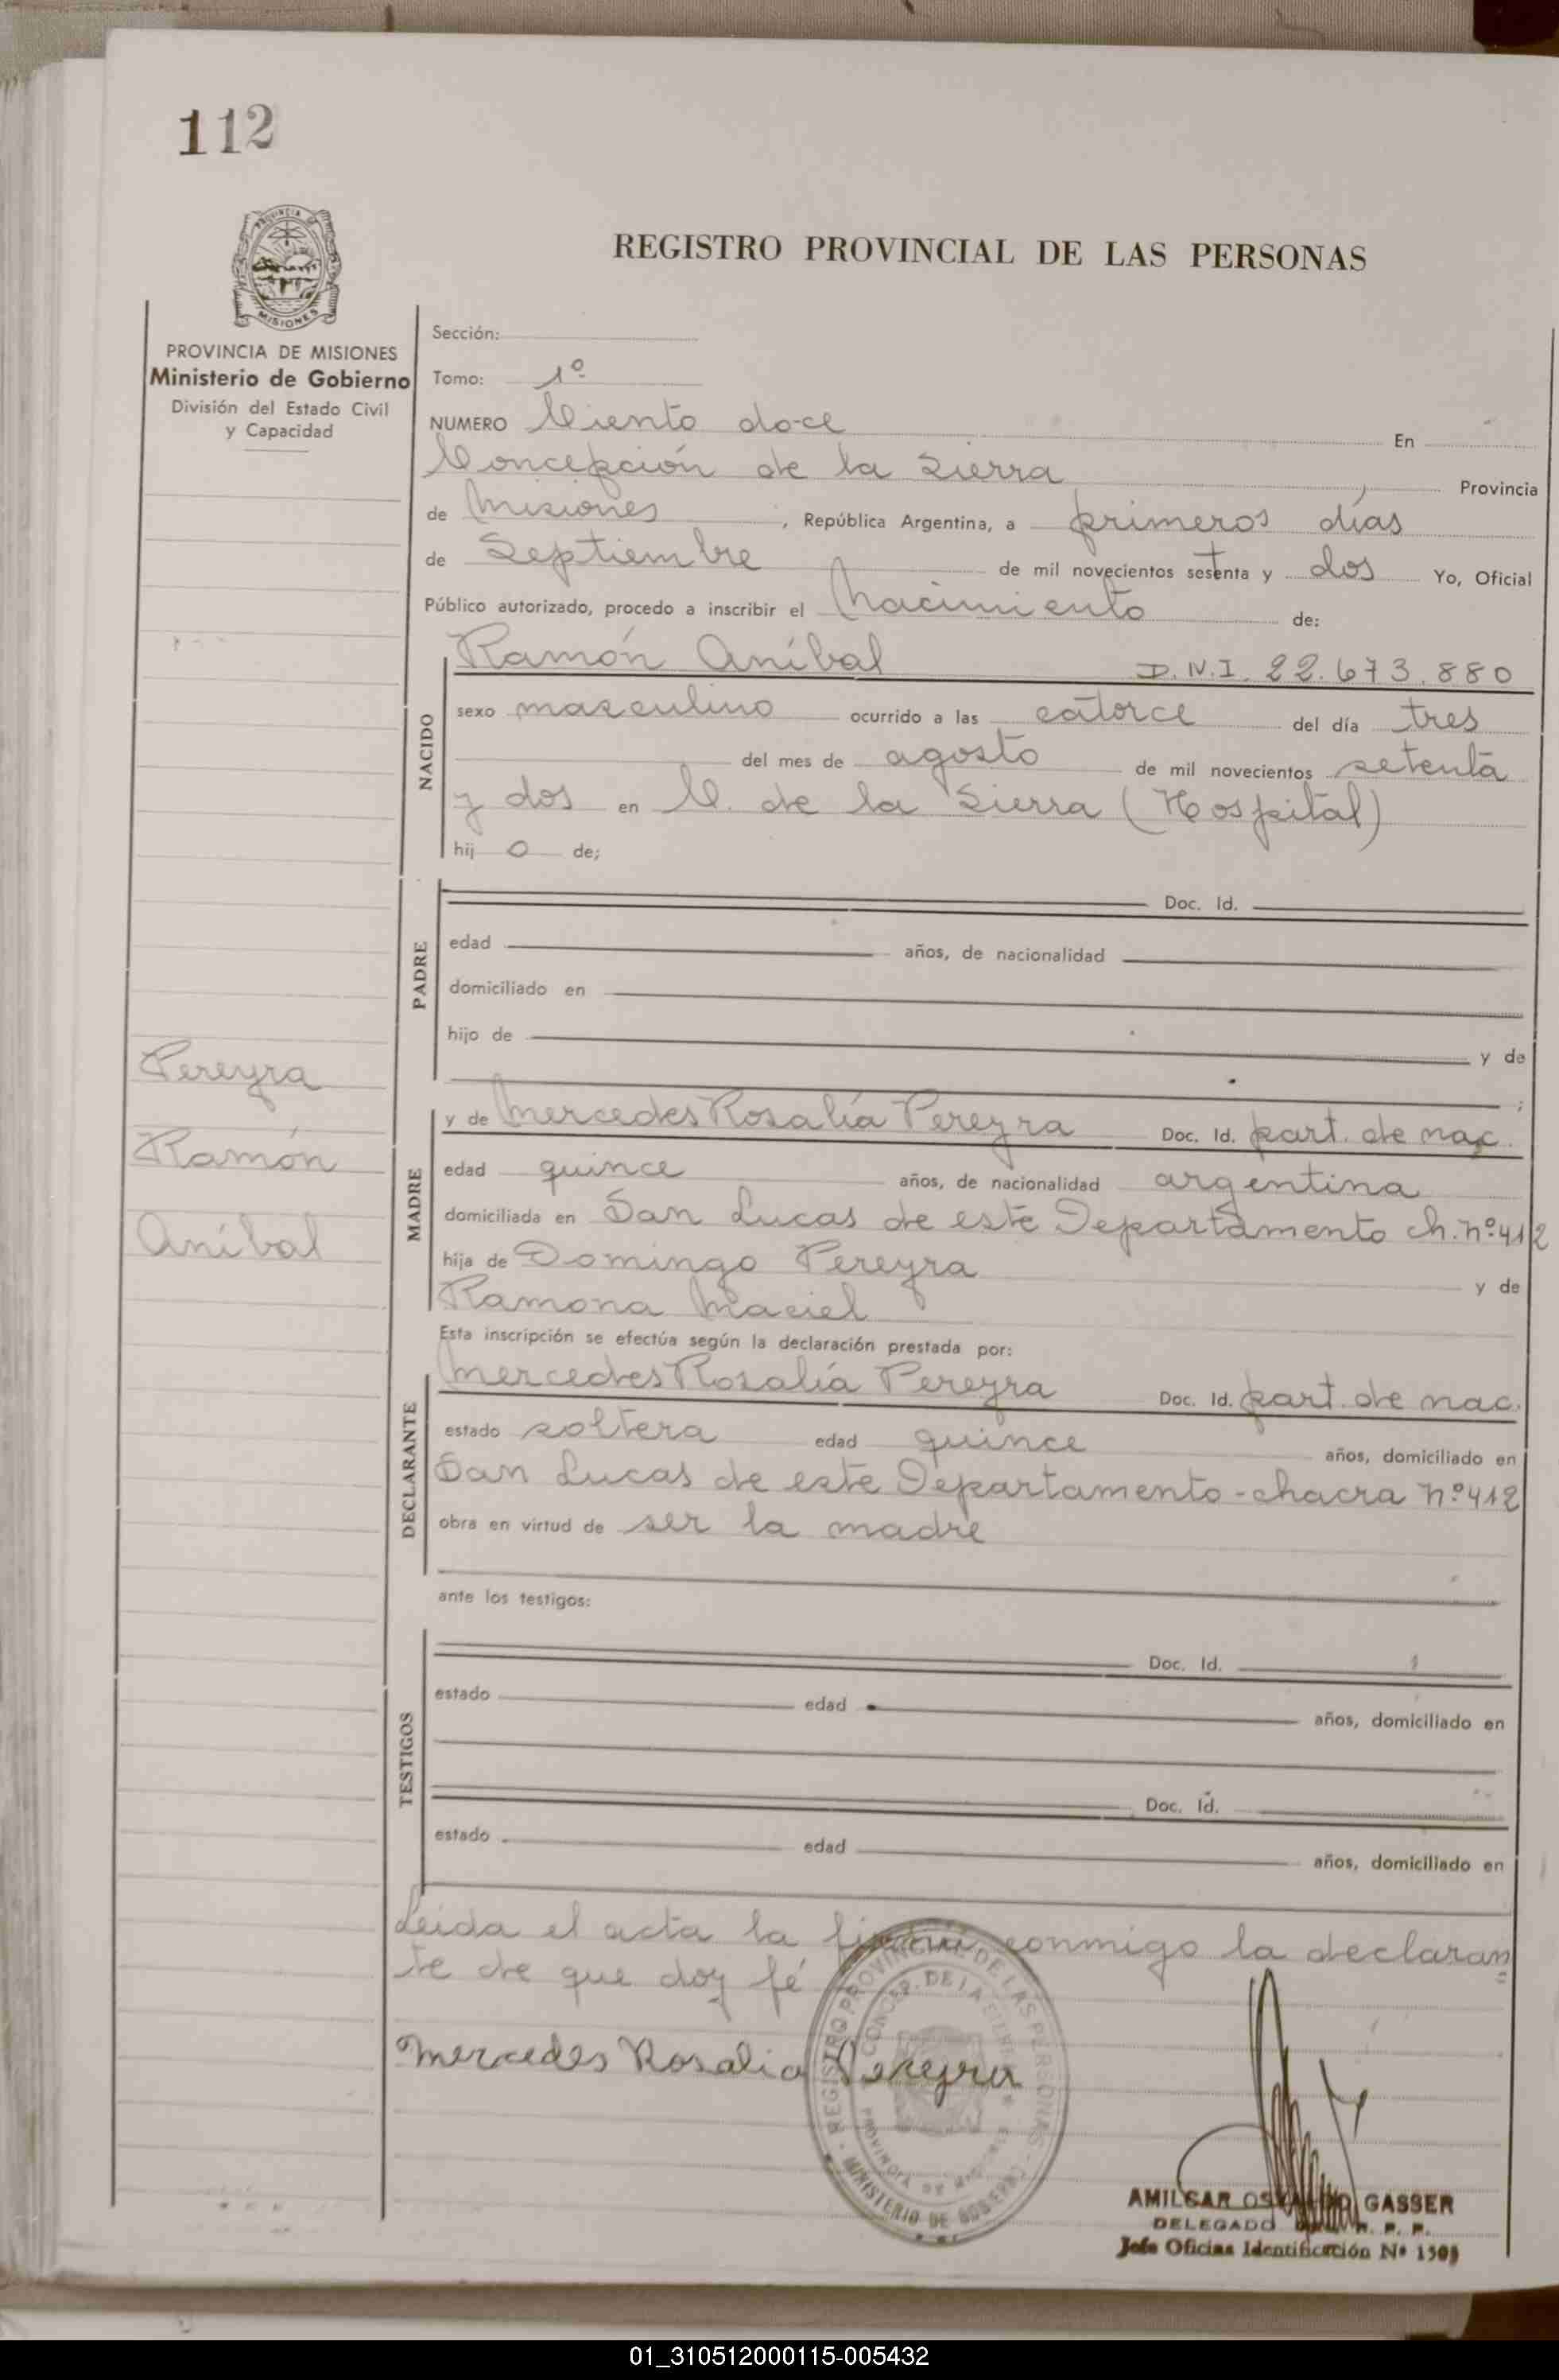 112
PROVINCIA DE
MISIONES
REGISTRO PROVINCIAL DE LAS PERSONAS
PROVINCIA DE MISIONES
Ministerio de Gobierno
División del Estado Civil
y Capacidad
Sección:
Tomo: 1º
NUMERO Ciento doce En
Concepción de la Sierra, Provincia
de Misiones, República Argentina, a primeros días
de Septiembre de mil novecientos setenta y dos Yo, Oficial
Público autorizado, procedo a inscribir el Nacimiento de:
NACIDO
Ramón Aníbal D.N.I. 22.673.880
sexo masculino ocurrido a las catorce del día tres
del mes de agosto de mil novecientos setenta
y dos en C. de la Sierra (Hospital)
hij o de;
PADRE
Doc. Id.
edad años, de nacionalidad
domiciliado en
hijo de y de
;
Pereyra
Ramón
Aníbal
MADRE
y de Mercedes Rosalía Pereyra Doc. Id. part. de nac.
edad quince años, de nacionalidad argentina
domiciliada en San Lucas de este Departamento ch. nº 412
hija de Domingo Pereyra y de
Ramona Maciel
Esta inscripción se efectúa según la declaración prestada por:
DECLARANTE
Mercedes Rosalía Pereyra Doc. Id. part. de nac.
estado soltera edad quince años, domiciliado en
San Lucas de este Departamento - chacra nº 412
obra en virtud de ser la madre
ante los testigos:
TESTIGOS
Doc. Id.
estado edad años, domiciliado en
Doc. Id.
estado edad años, domiciliado en
Leída el acta la firma conmigo la declaran
te de que doy fé
Mercedes Rosalia Pereyra
REGISTRO PROVINCIAL DE LAS PERSONAS
CONCEP. DE LA SIERRA
PROVINCIA DE MISIONES
MINISTERIO DE GOBIERNO
AMILCAR GASSER
DELEGADO R. P. P.
Jefe Oficina Identificación Nº
01_310512000115-005432